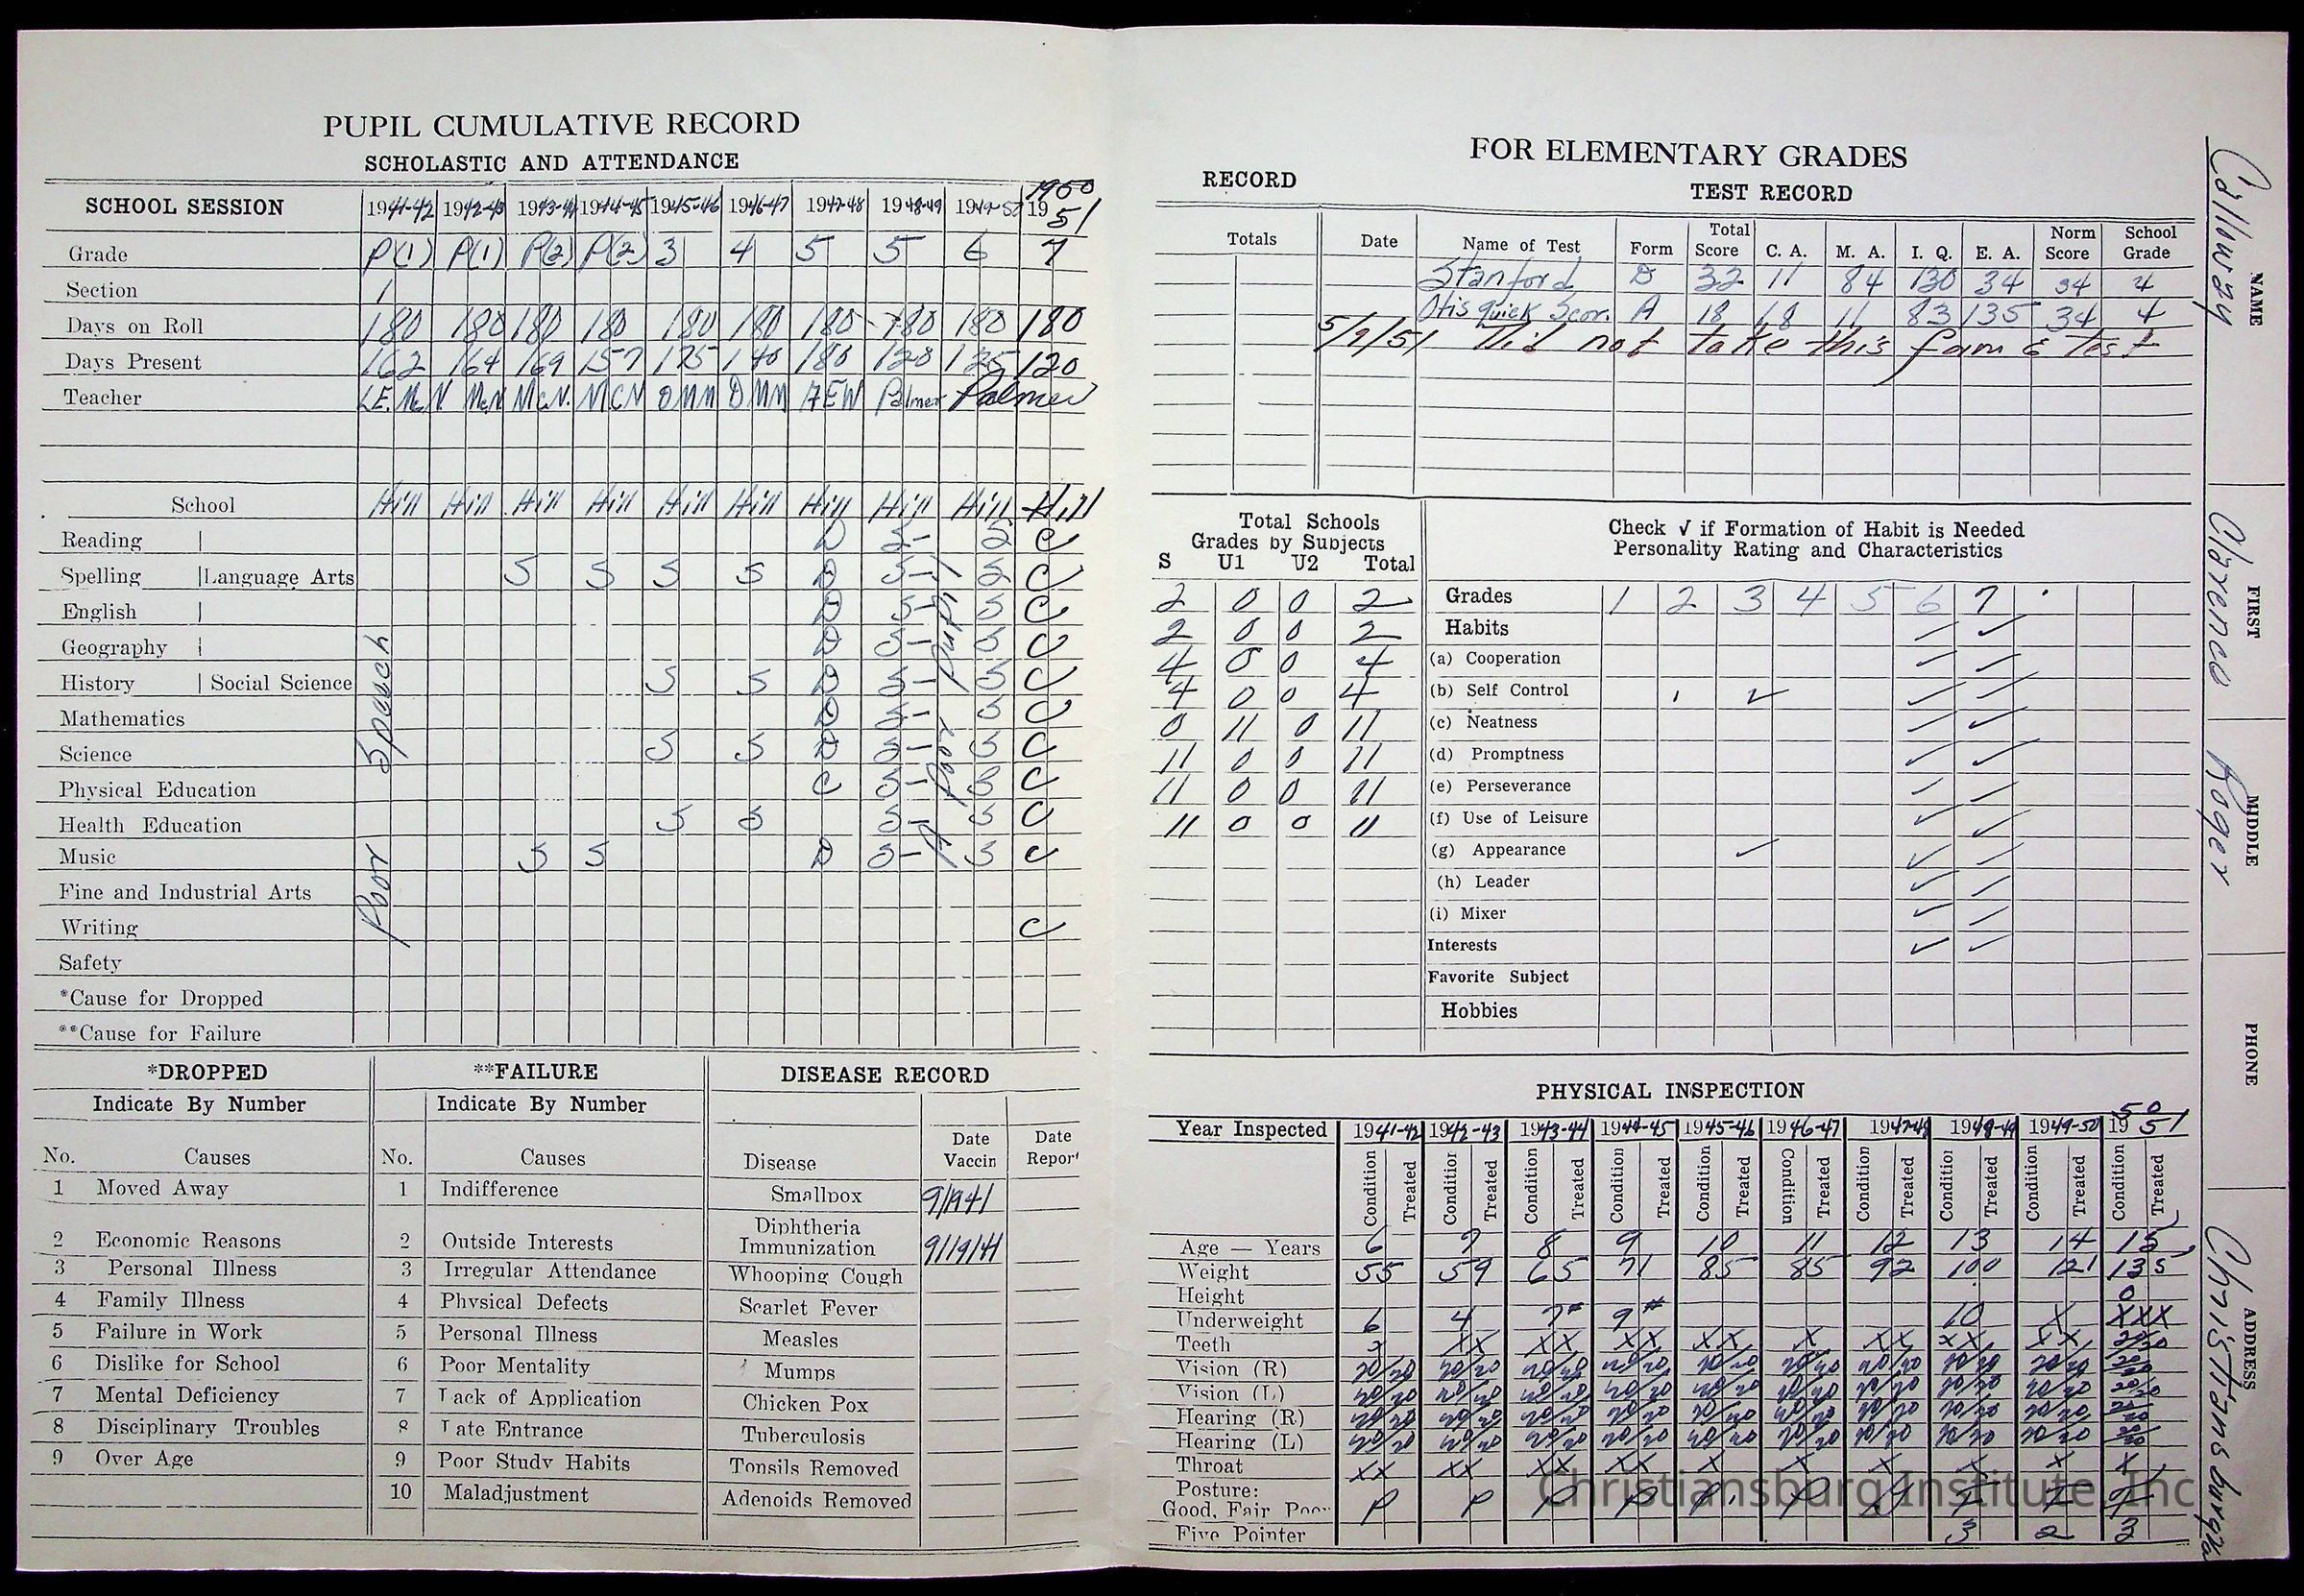 PUPIL CUMULATIVE RECORD
SCHOLASTIC AND ATTENDANCE
SCHOOL SESSION 1941-42 1942-43 1943-44 1944-45 1945-46 1946-47 1947-48 1948-49 1949-50 1950 1951
Grade P(1) P(1) P(2) P(2) 3 4 5 5 6 7
Section 1
Days on Roll 180 180 180 180 180 180 180 180 180 180
Days Present 162 164 169 157 175 140 180 128 125 120
Teacher L.E. McN. McN McN. McN OMM OMM AEW Palmer Palmer
School Hill Hill Hill Hill Hill Hill Hill Hill Hill Hill
Reading D S- S C
Spelling Language Arts S S S S D S- S C
English D S- S C
Geography D S- S C
History Social Science S S D S- S C
Mathematics D S- S C
Science S S D S- S C
Physical Education C S- S C
Health Education S S S- S C
Music S S D S- S C
Fine and Industrial Arts
Writing C
Safety
*Cause for Dropped
**Cause for Failure
Poor Speech
A poor pupil
*DROPPED
Indicate By Number
No. Causes
1 Moved Away
2 Economic Reasons
3 Personal Illness
4 Family Illness
5 Failure in Work
6 Dislike for School
7 Mental Deficiency
8 Disciplinary Troubles
9 Over Age
**FAILURE
Indicate By Number
No. Causes
1 Indifference
2 Outside Interests
3 Irregular Attendance
4 Physical Defects
5 Personal Illness
6 Poor Mentality
7 Lack of Application
8 Late Entrance
9 Poor Study Habits
10 Maladjustment
DISEASE RECORD
Disease Date Vaccin Date Report
Smallpox 9/19/41
Diphtheria
Immunization 9/19/41
Whooping Cough
Scarlet Fever
Measles
Mumps
Chicken Pox
Tuberculosis
Tonsils Removed
Adenoids Removed
FOR ELEMENTARY GRADES
RECORD
TEST RECORD
Totals Date Name of Test Form Total Score C. A. M. A. I. Q. E. A. Norm Score School Grade
Stanford D 32 11 84 130 34 34 4
Otis quick Scor. A 18 18 11 83 135 34 4
5/9/51 Did not take this form 6 test
Total Schools
Grades by Subjects
S U1 U2 Total
2 0 0 2
2 0 0 2
4 0 0 4
4 0 0 4
0 11 0 11
11 0 0 11
11 0 0 11
11 0 0 11
Check √ if Formation of Habit is Needed
Personality Rating and Characteristics
Grades 1 2 3 4 5 6 7
Habits ✓ ✓
(a) Cooperation ✓ ✓
(b) Self Control ✓ ✓ ✓
(c) Neatness ✓ ✓
(d) Promptness ✓ ✓
(e) Perseverance ✓ ✓
(f) Use of Leisure ✓ ✓
(g) Appearance ✓ ✓ ✓
(h) Leader ✓ ✓
(i) Mixer ✓ ✓
Interests ✓ ✓
Favorite Subject
Hobbies
PHYSICAL INSPECTION
Year Inspected 1941-42 1942-43 1943-44 1944-45 1945-46 1946-47 1947-48 1948-49 1949-50 1950 51
Condition Treated Condition Treated Condition Treated Condition Treated Condition Treated Condition Treated Condition Treated Condition Treated Condition Treated Condition Treated
Age — Years 6 7 8 9 10 11 12 13 14 15
Weight 55 59 65 71 85 85 92 100 121 135
Height 0
Underweight 6 4 7# 9# 10 X XXX
Teeth XX XX XX XX X XX XX XX
Vision (R) 20/20 20/20 20/20 20/20 20/20 20/20 20/20 20/20 20/20 20/20
Vision (L) 20/20 20/20 20/20 20/20 20/20 20/20 20/20 20/20 20/20 20/20
Hearing (R) 20/20 20/20 20/20 20/20 20/20 20/20 20/20 20/20 20/20 20/20
Hearing (L) 20/20 20/20 20/20 20/20 20/20 20/20 20/20 20/20 20/20 20/20
Throat XX XX XX XX X X X X X X
Posture:
Good, Fair Poor P P P P P
Five Pointer 3 2 3
NAME Calloway
FIRST Clarence
MIDDLE Roger
PHONE
ADDRESS Christiansburg Va
Christiansburg Institute, Inc